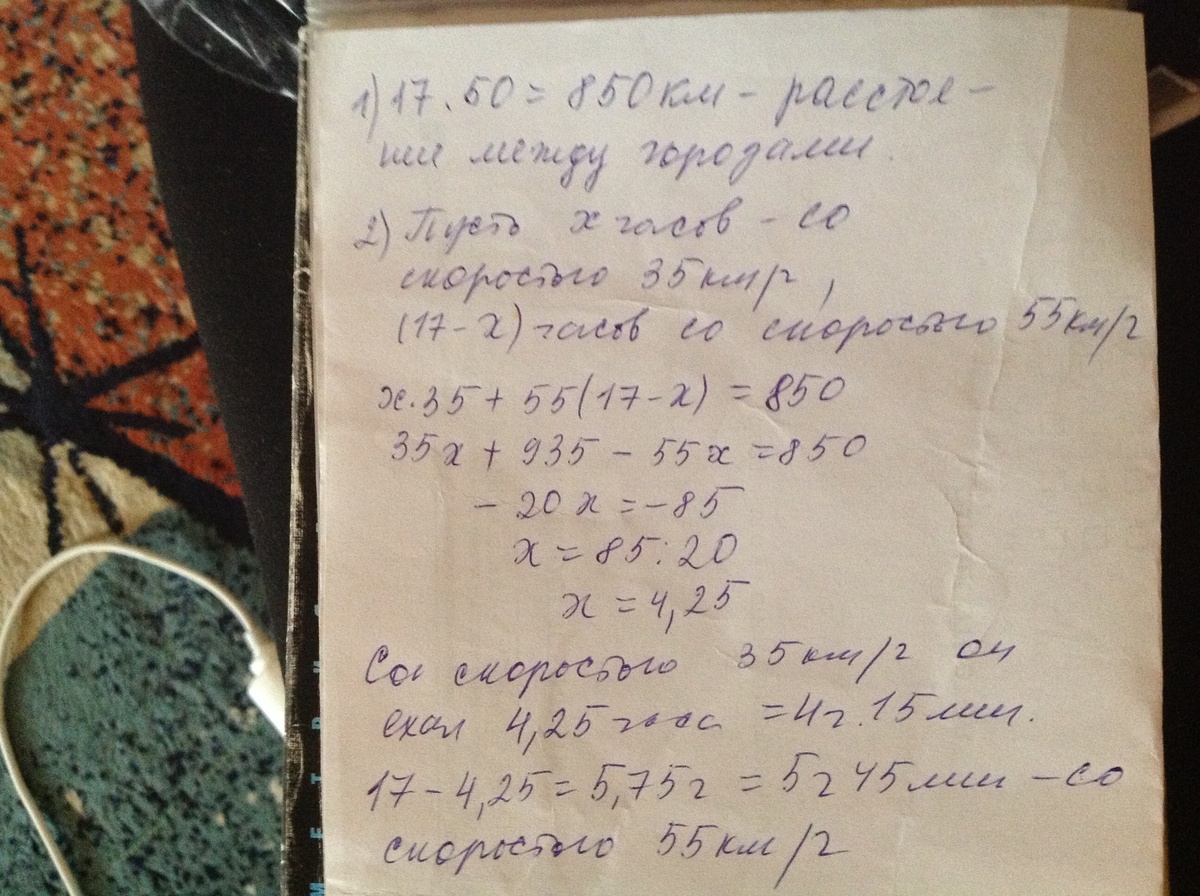 1) 17 . 50 = 850 км – расстоя –
ние между городами.
2) Пусть х часов – со
скоростью 35 км/ч,
(17 – х) часов со скоростью 55 км/ч
х . 35 + 55(17 – х) = 850
35х + 935 – 55х = 850
– 20 х = – 85
х = 85 : 20
х = 4,25
Со скоростью 35 км/ч он
ехал 4,25 часа = 4 ч. 15 мин.
17 – 4,25 = 5,75 ч = 5 ч 45 мин – со
скоростью 55 км/ч